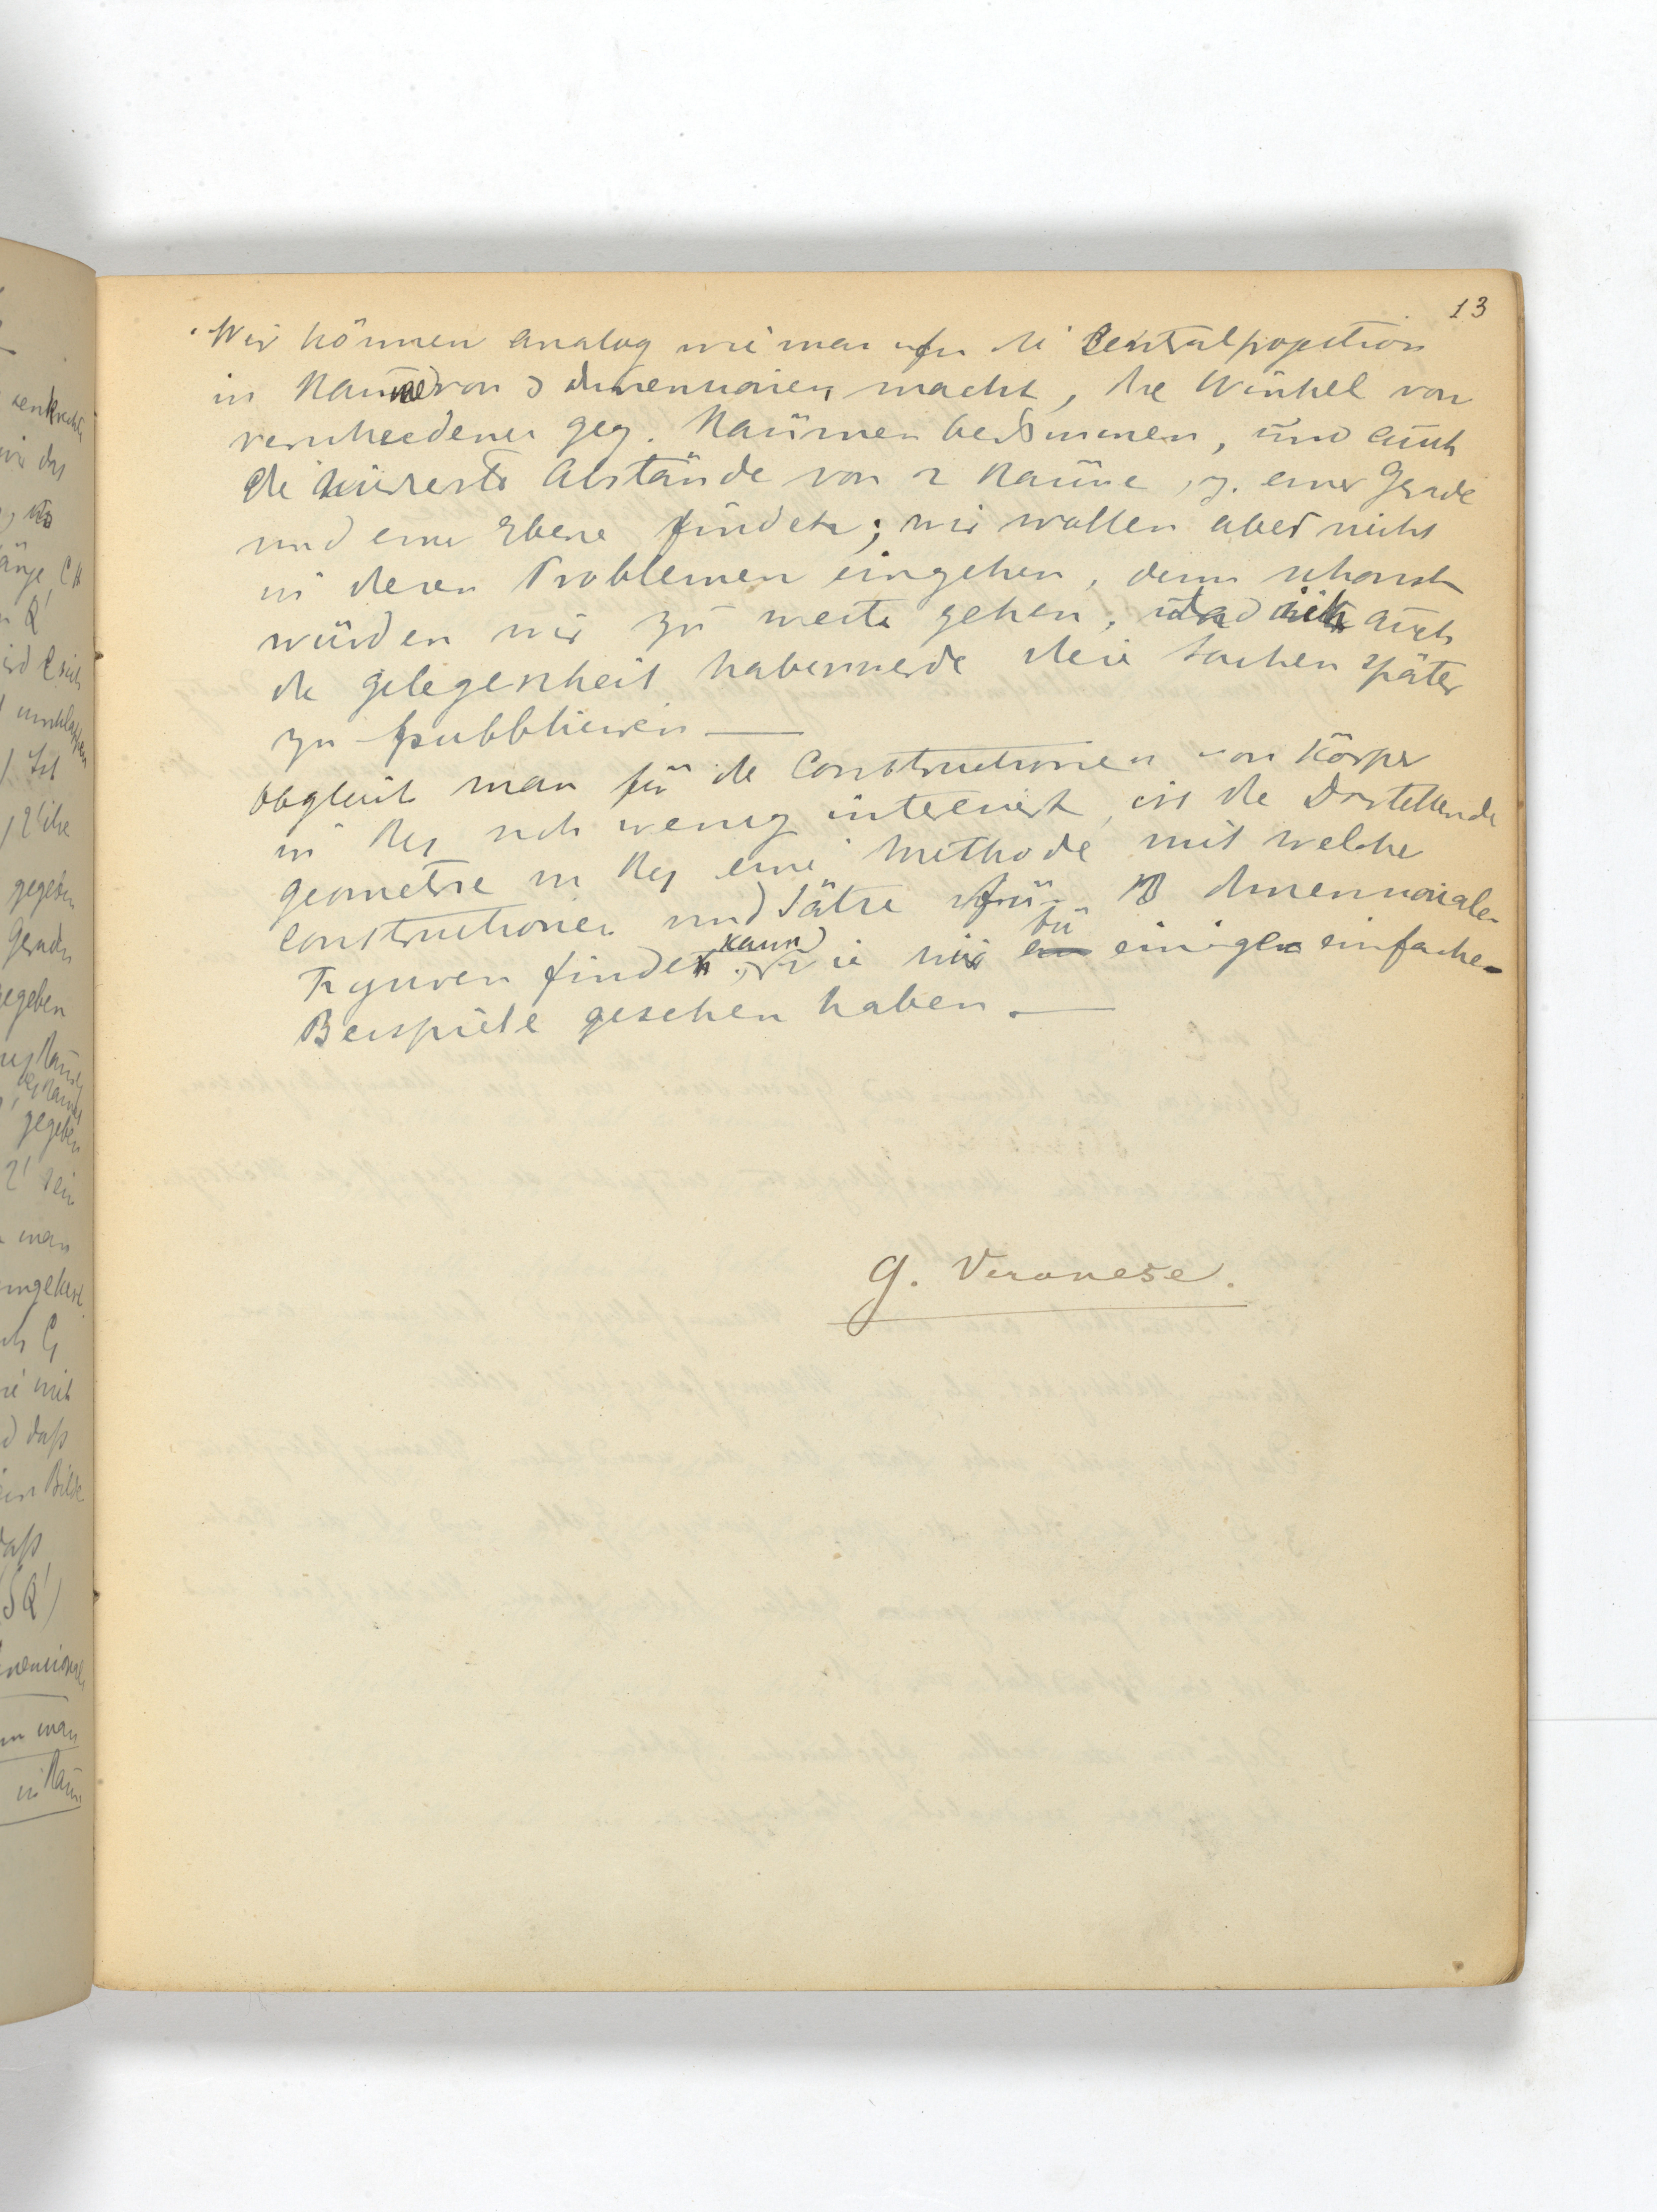 13
Wir können analog wie man für die Centralprojektion
in Raume von 3 dimensionen macht, die Winkel von
verschiedenen geg. Raümen bekommen, und auch
die kürzeste Abstände von 2 Raüme, z. einer Gerade
und einer Ebene finden; wir wollen aber nicht
in diesen Problemen eingehen, denn schonst
würden wir zu weite gehen, und auch
die gelegenheit haben werde diese Sachen später
zu pubblicieren —
Obgleich man für die Constructionen von Körper
in R₄ sich wenig interesiert, ist die Darstellende
geometrie in R₄ eine Methode mit welche
constructionen und Sätze für 3 dimensionale
Figuren finden kann, wie wir bei einige einfache
Beispiele gesehen haben. —
G. Veronese.
senkrecht
wir das
gegeben
Geraden
gegeben
gegeben
man
umgekehrt
mit
daß
ein Bild
daß
man
in Raum